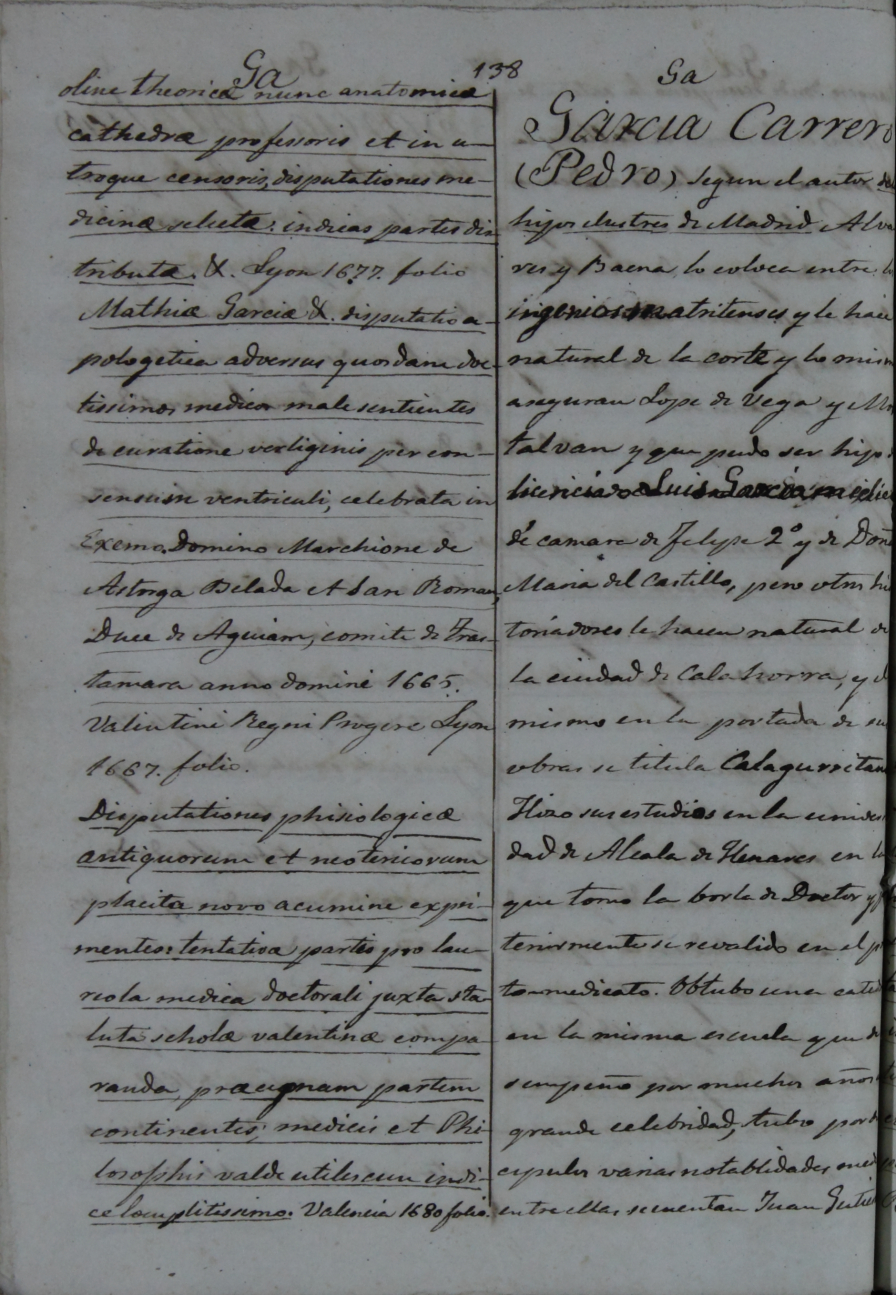 Ga
138
Ga
oline theoricæ nunc anatomicæ
cathedræ professoris et in u-
troque censoris, disputationes me-
dicinæ selectæ: in duas partes dis
tributæ. &. Lyon 1677. folio
Mathiæ Garciæ &. disputatio a-
pologetica adversus quosdam doc-
tissimos medicos male sentientes
de curatione vertiginis per con-
sensum ventriculi, celebrata in
Exemo. Domino Marchione de
Astorga Belada et San Roman,
Duce de Aguiam, comite de Tras-
tamara anno domine 1665.
Valintini Regni Progere Lyon
1667. folio.
Disputationes phisiologicæ
antiquorum et neotericorum
placita novo acumine expri-
mentes: tentativæ partes pro lau-
reola medica doctorali juxta sta-
tuta scholæ valentinæ compa-
randa, præcipuam partem
continentes; medicis et Phi-
losophis valde utiles cum indi-
ce completissimo. Valencia 1680 folio.
Garcia Carrero
(Pedro) Segun el autor de
hijos ilustres de Madrid Alva
res y Baena, lo coloca entre l
ingenios matritenses y le hace
natural de la corte y lo mism
aseguran Lope de Vega y Mon
talvan y que pudo ser hijo d
licenciado Luis García, médic
de camara de Felipe 2º y de Doñ
Maria del Castillo, pero otros his
toriadores le hacen natural de
la ciudad de Calahorra, y el
mismo en la portada de su
obras se titula Calagurritan
Hizo sus estudios en la univer
dad de Alcala de Henares en la
que tomo la borla de Doctor y
teriormente se revalido en el p
to-medicato. Obtubo una cate
en la misma escuela que de
sempeño por muchos años
grande celebridad, tubo por d
cipulos varias notablidades med
entre ellas se cuentan Juan Gutier